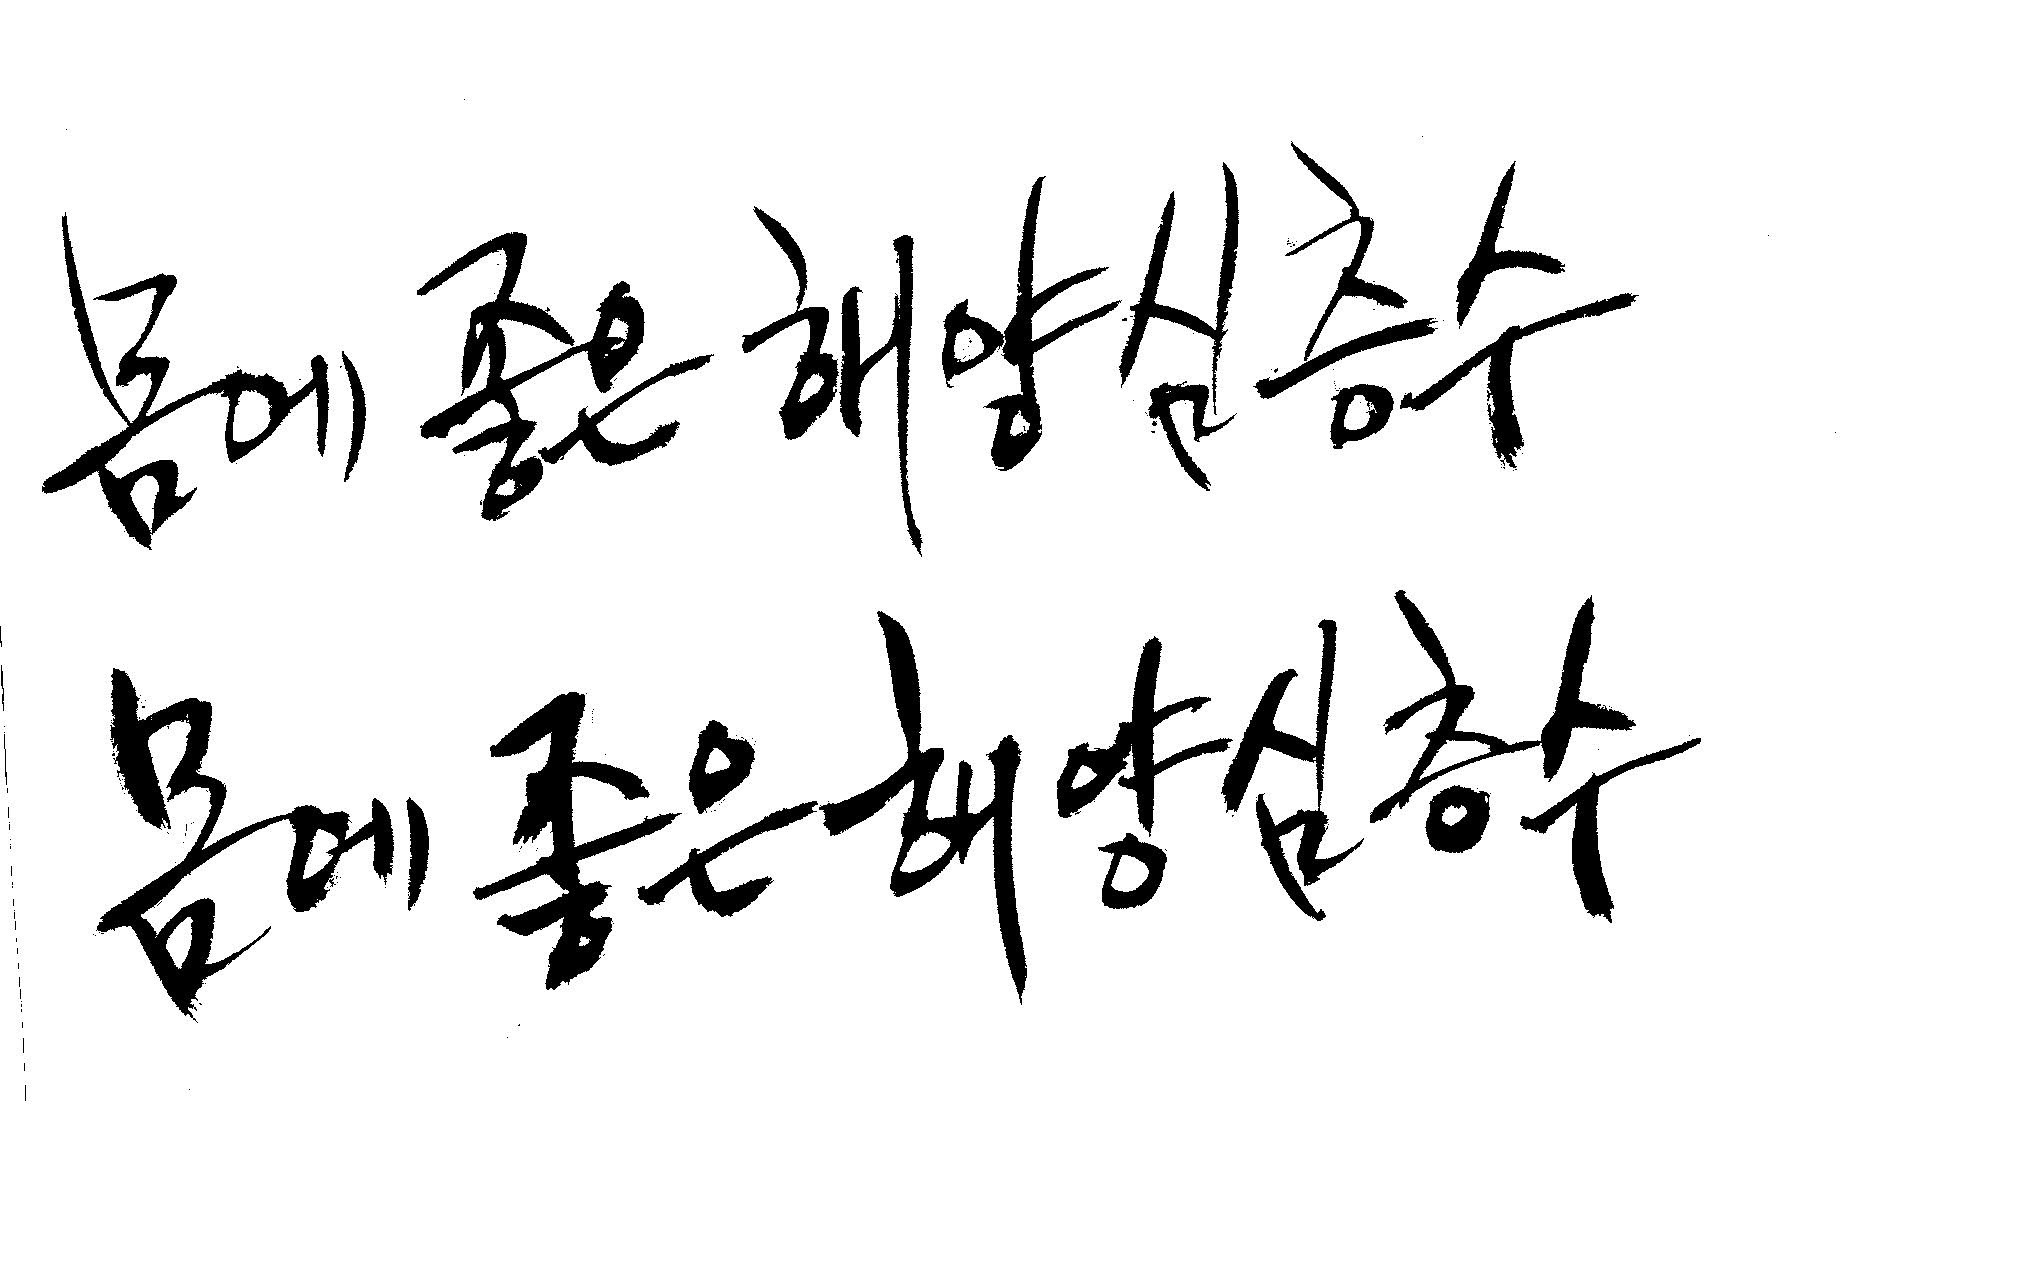 몸에 좋은 해양심층수
몸에 좋은 해양심층수